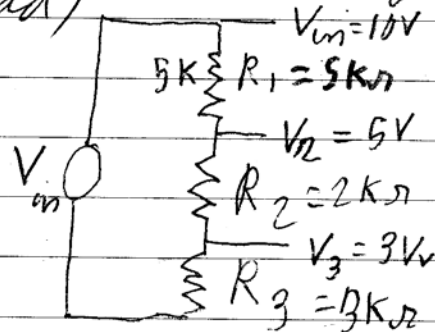 Vin=10V
5K R1=5KΩ
V2=5V
Vin
R2=2KΩ
V3=3V
R3=3KΩ